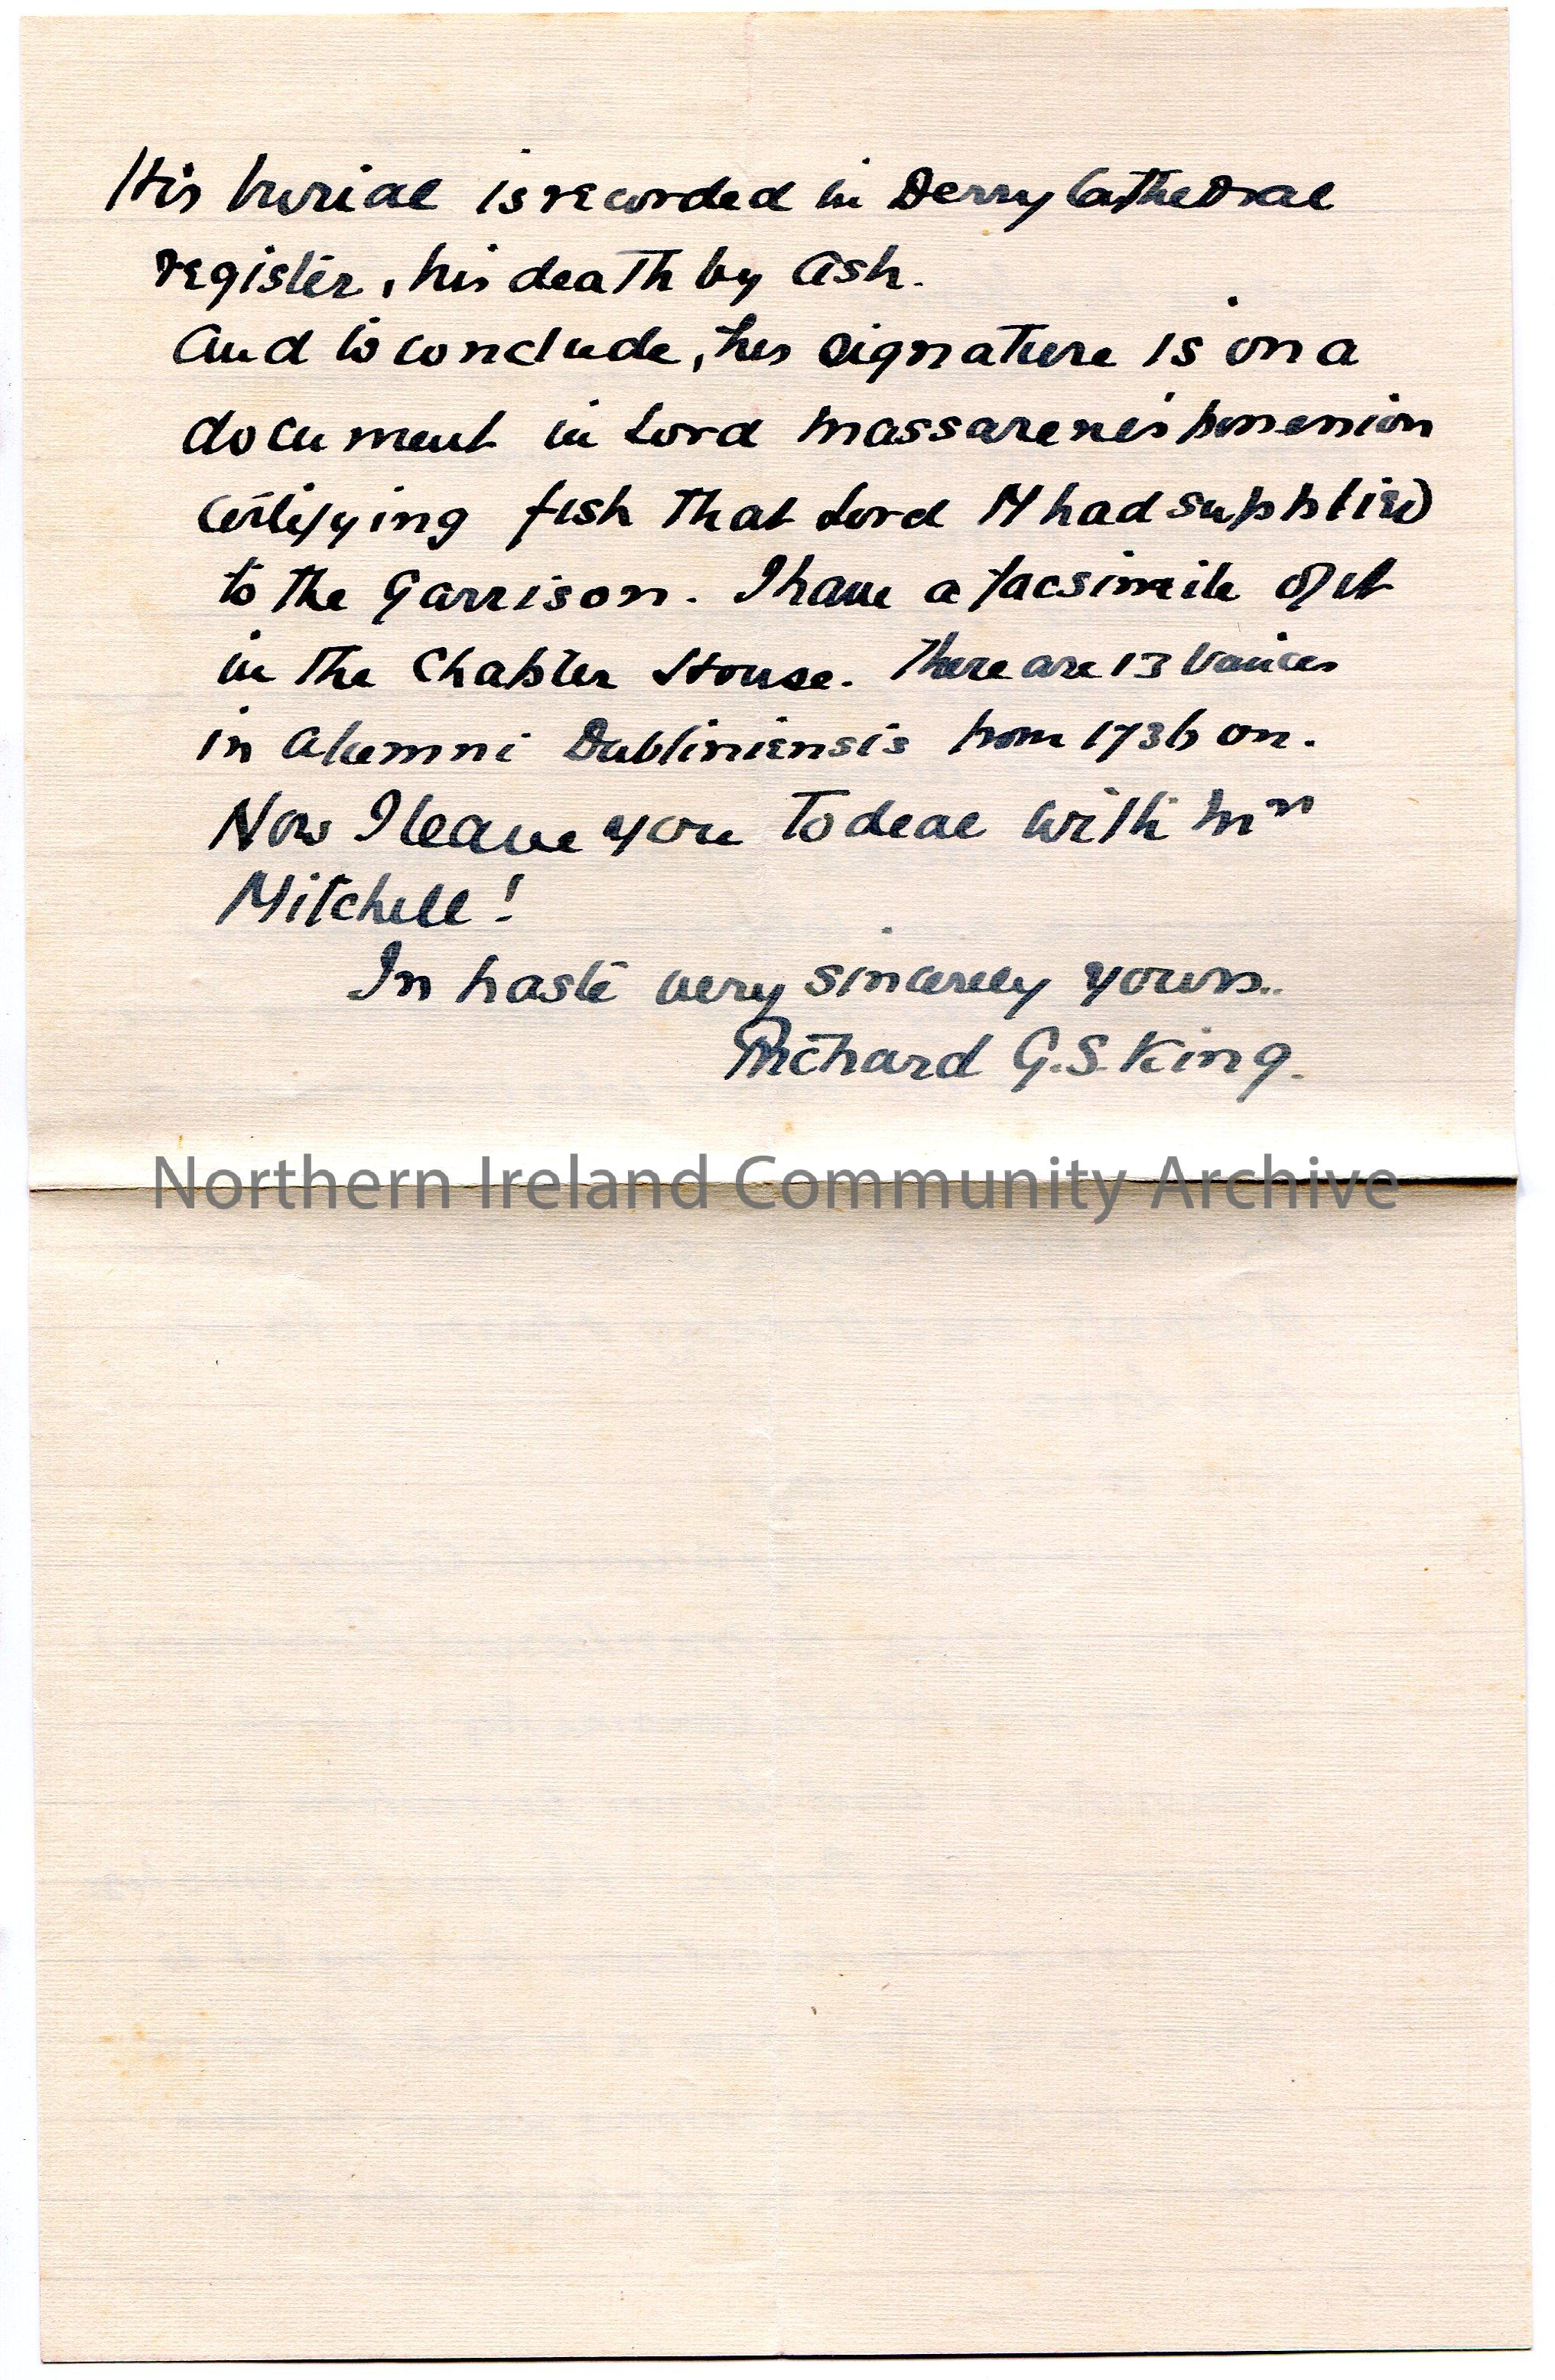 His burial is recorded in Derry Cathedral
register, his death by Ash.
And to conclude, his signature is on a
document in Lord Massarene's possession
certifying fish that Lord M had supplied
to the Garrison. I have a facsimile of it
in the Chapter House. There are 13 Vances
in Alumni Dubliniensis from 1736 on.
Now I leave you to deal with Mrs
Mitchell!
In haste very sincerely yours..
Richard G.S. King.
Northern Ireland Community Archive